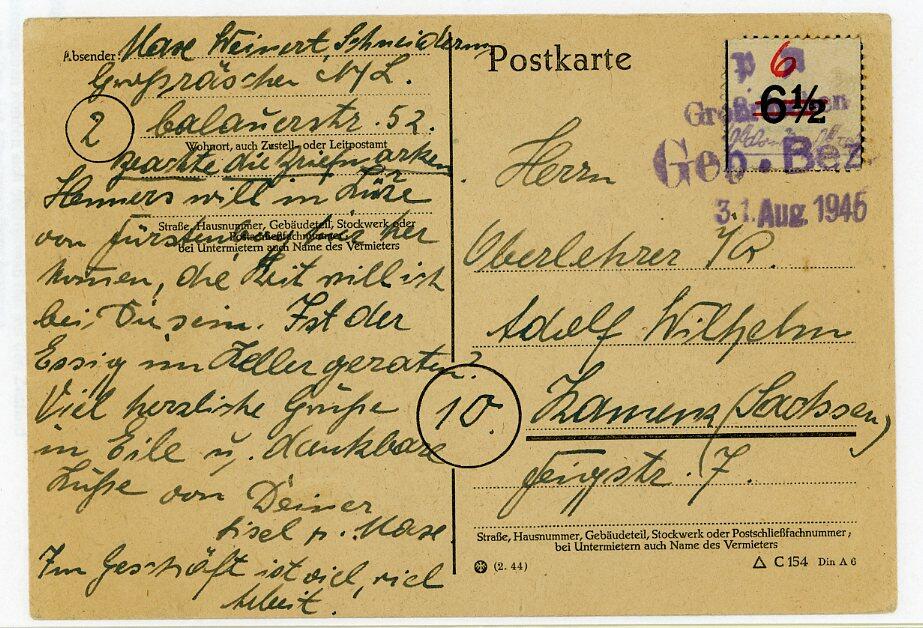 Absender Mase Weinert, Schneiderm
Großräschen N/L.
2
Calauerstr. 52.
Wohnort, auch Zustell- oder Leitpostamt
Beachte die Briefmarken
Henners will in Kürze
von Fürstenberg hier her
Straße, Hausnummer, Gebäudeteil, Stockwerk oder
Postschließfachnummer;
bei Untermietern auch Name des Vermieters
kommen, die Zeit will ich
bei Dir sein. Ist der
Essig im Keller geraten?
Viel herzliche Grüße
in Eile u. dankbare
Küsse von Deiner
Lisel u. Mase
Im Geschäft ist viel, viel
Arbeit.
Postkarte
6
6½
Großräschen
Geb. Bez.
31. Aug. 1945
Herrn
Oberlehrer i/R.
Adolf Wilhelm
10.
Kamenz (Sachsen)
Feigstr. 7.
Straße, Hausnummer, Gebäudeteil, Stockwerk oder Postschließfachnummer;
bei Untermietern auch Name des Vermieters
(2. 44)
C 154 Din A 6